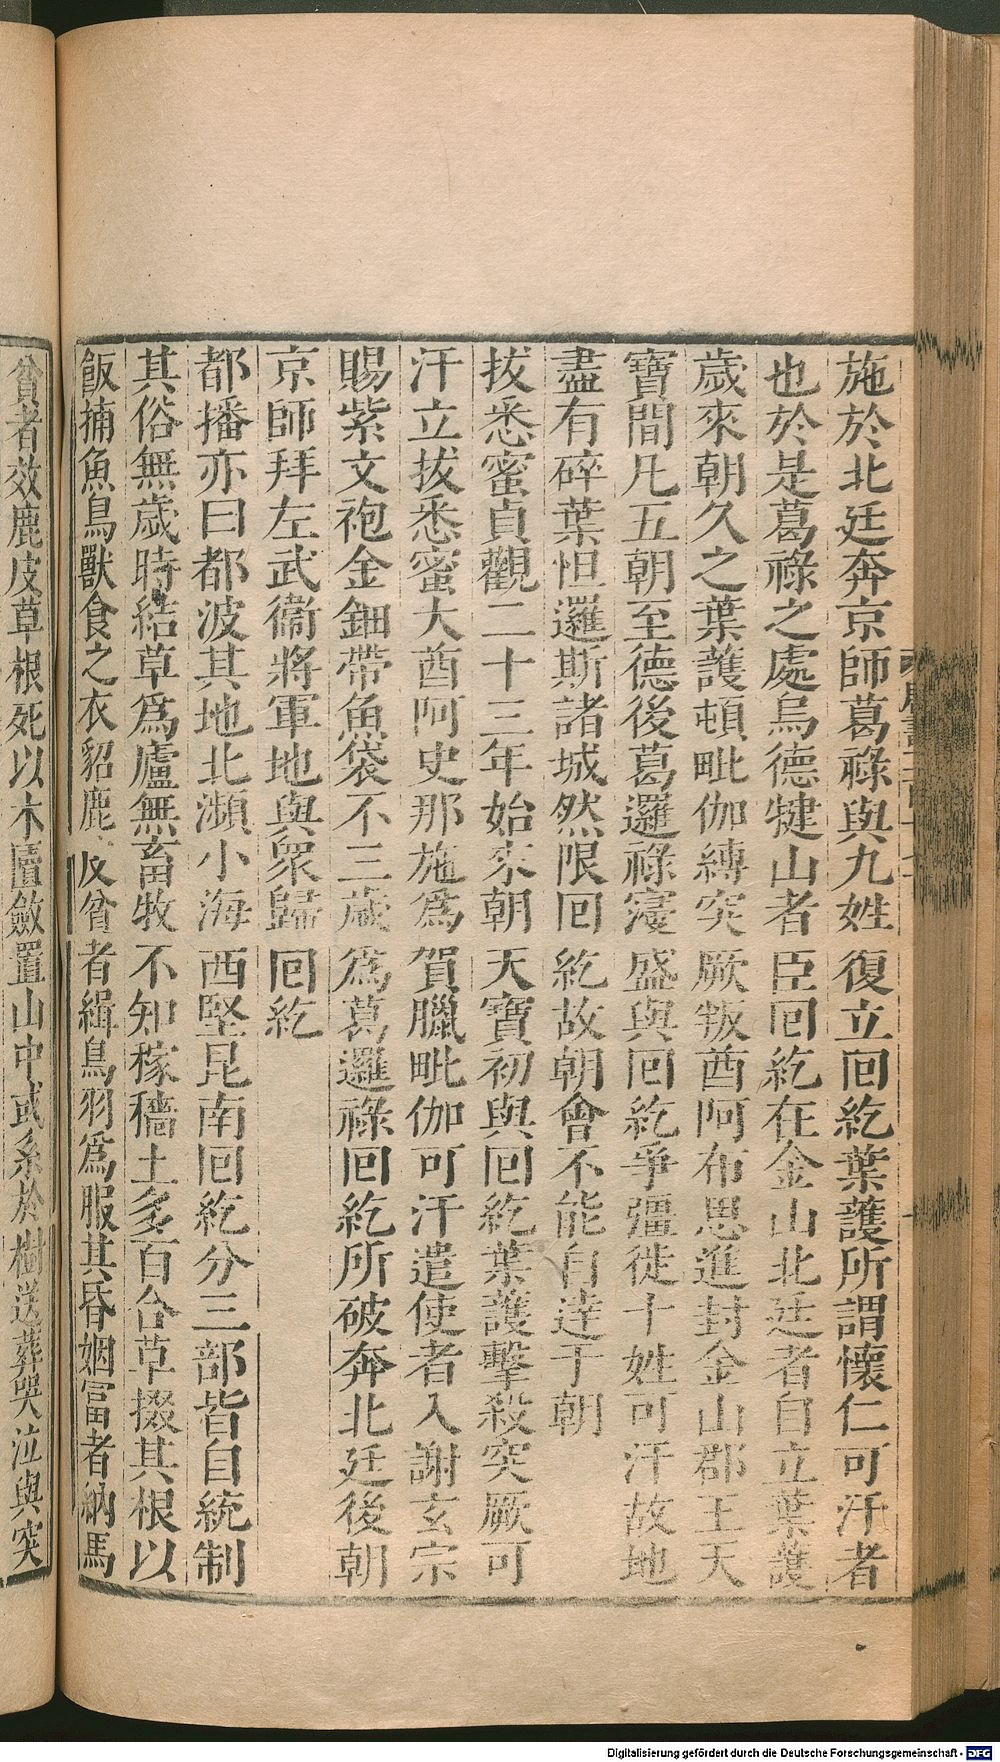 施於北廷奔京師葛祿與九姓復立回紇葉護所謂懷仁可汗者
也於是葛祿之處烏德犍山者臣回紇在金山北廷者自立葉護
歲來朝久之葉護頓毗伽縛突厥叛酋阿布思進封金山郡王天
寶間凡五朝至德後葛邏祿寖盛與回紇爭彊徙十姓可汗故地
盡有碎葉怛邏斯諸城然限回紇故朝會不能自達于朝
拔悉蜜貞觀二十三年始來朝天寶初與回紇葉護擊殺突厥可
汗立拔悉蜜大酋阿史那施爲賀臘毗伽可汗遣使者入謝玄宗
賜紫文袍金鈿帶魚袋不三歲爲葛邏祿回紇所破奔北廷後朝
京師拜左武衞將軍地與衆歸回紇
都播亦曰都波其地北瀕小海西堅昆南回紇分三部皆自統制
其俗無歲時結草爲廬無畜牧不知稼穡土多百合草掇其根以
飯捕魚鳥獸食之衣貂鹿皮貧者緝鳥羽爲服其昏姻富者納馬
貧者效鹿皮草根死以木匵斂置山中或系於樹送葬哭泣與突
Digitalisierung gefördert durch die Deutsche Forschungsgemeinschaft - DFG